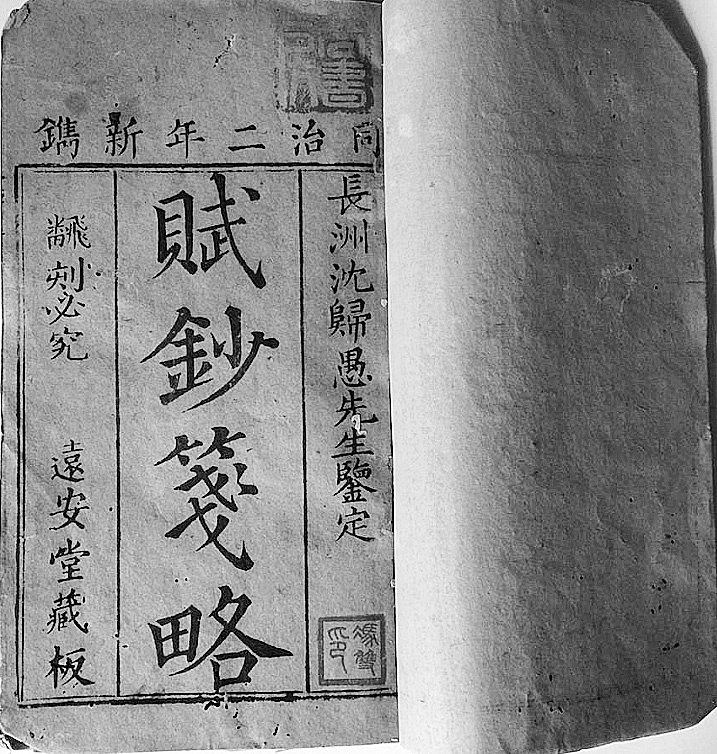 同治二年新鐫
長洲沈歸愚先生鑒定
賦鈔箋略
翻刻必究
遠安堂藏板